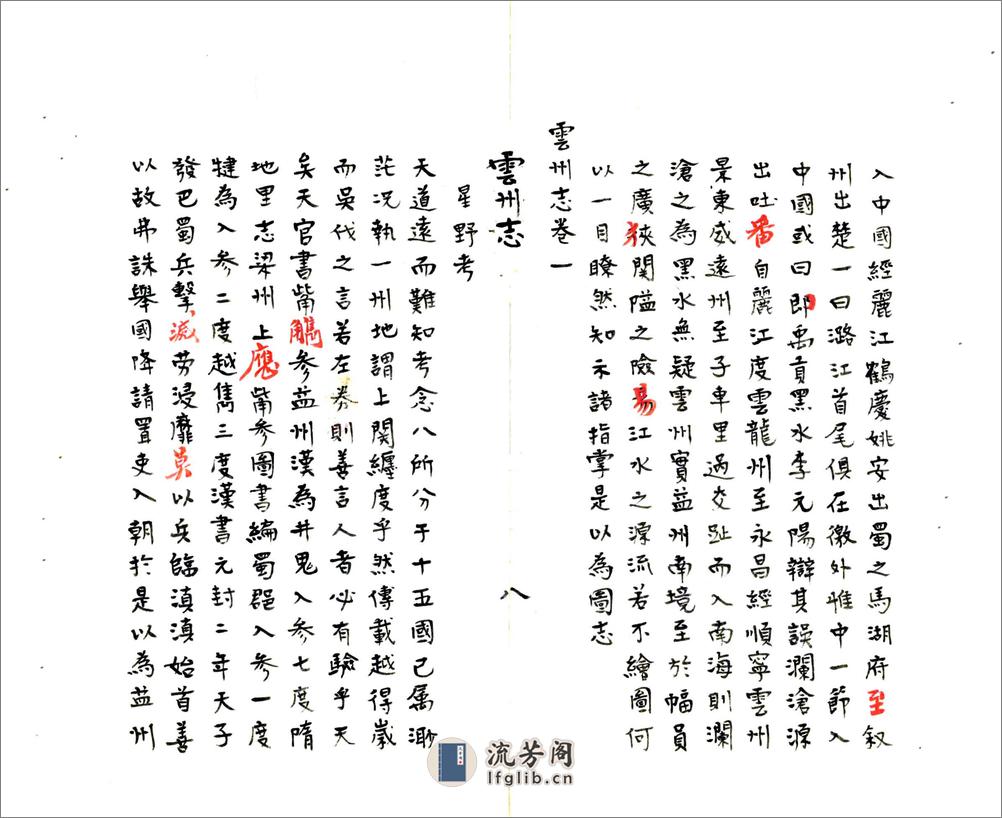 入中國經麗江鶴慶姚安出蜀之馬湖府至叙
州出楚一曰潞江首尾俱在徼外惟中一節入
中國或曰即禹貢黑水李元陽辯其誤瀾滄源
出吐番自麗江度雲龍州至永昌經順寧雲州
景東威遠州至子車里過交趾而入南海則瀾
滄之為黑水無疑雲州實益州南境至於幅員
之廣狹関隘之險易江水之源流若不繪圖何
以一目瞭然知示諸指掌是以為圖志
雲州志卷一
雲州志
八
星野考
天道遠而難知考念八所分于十五國已属渺
茫况執一州地謂上関纏度乎然傳載越得嵗
而吳伐之言若左券則善言人者必有驗乎天
矣天官書觜觹参益州漢為井鬼入参七度隋
地里志梁州上應觜参圖書編蜀郡入参一度
犍為入参二度越雋三度漢書元封二年天子
發巴蜀兵擊滅劳浸靡莫以兵臨滇滇始首善
以故弗誅舉國降請置吏入朝於是以為益州
流芳阁
lfglib.cn